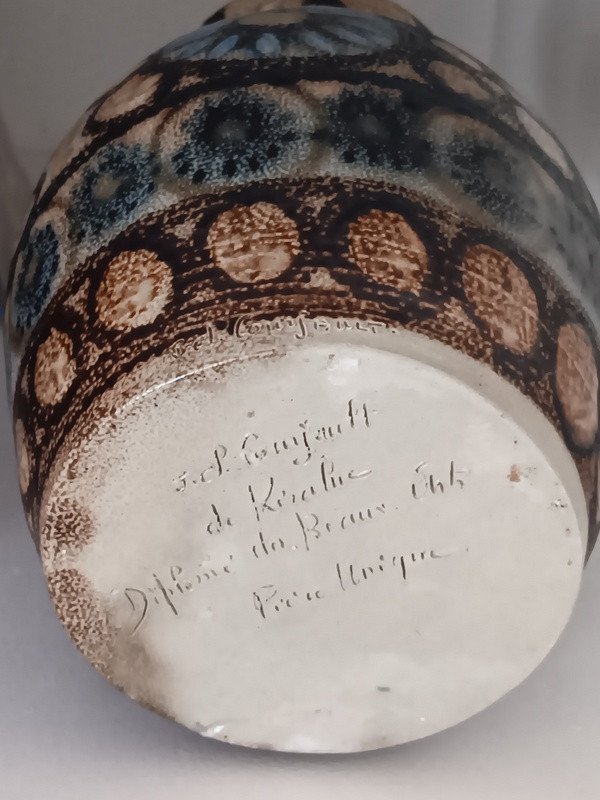 J. P. Courjault
J. P. Courjault
de Kéraluc
Diplômé des Beaux-Arts
Pièce Unique